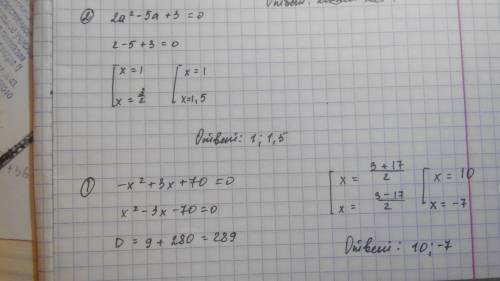 ② 2a² - 5a + 3 = 0
2 - 5 + 3 = 0
[ x = 1
x = 3/2
[ x = 1
x = 1,5
Ответ: 1; 1,5
① -x² + 3x + 70 = 0
x² - 3x - 70 = 0
D = 9 + 280 = 289
[ x = (3 + 17)/2
x = (3 - 17)/2
[ x = 10
x = -7
Ответ: 10; -7